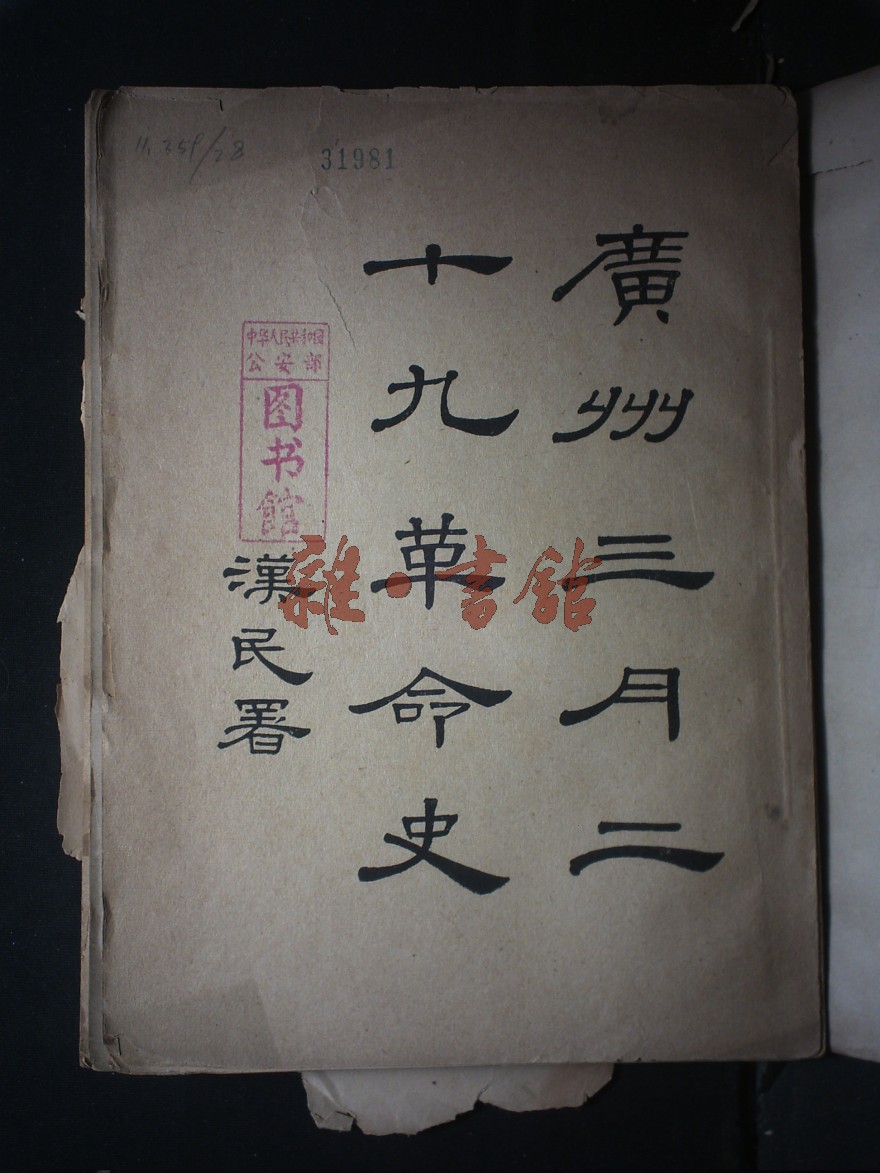 31981
廣州三月二
十九革命史
中华人民共和国
公安部
图书館
漢民署
雜·書館